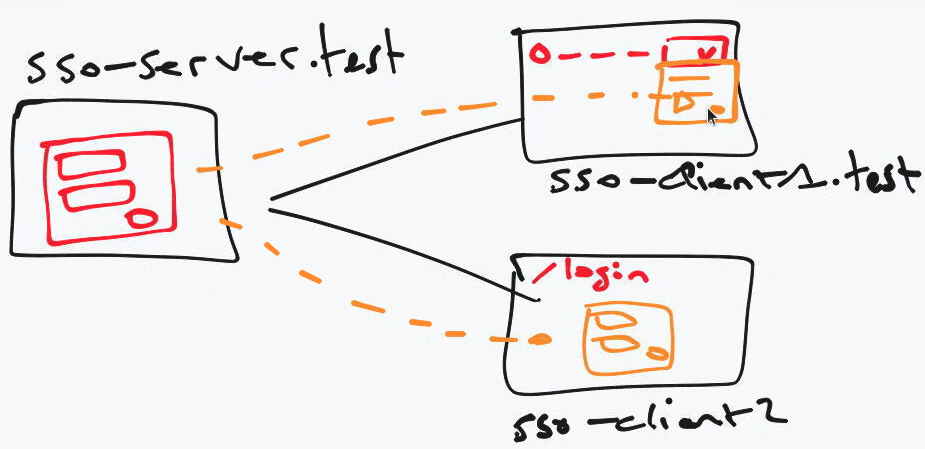 sso-server.test
sso-client1.test
/login
sso-client2